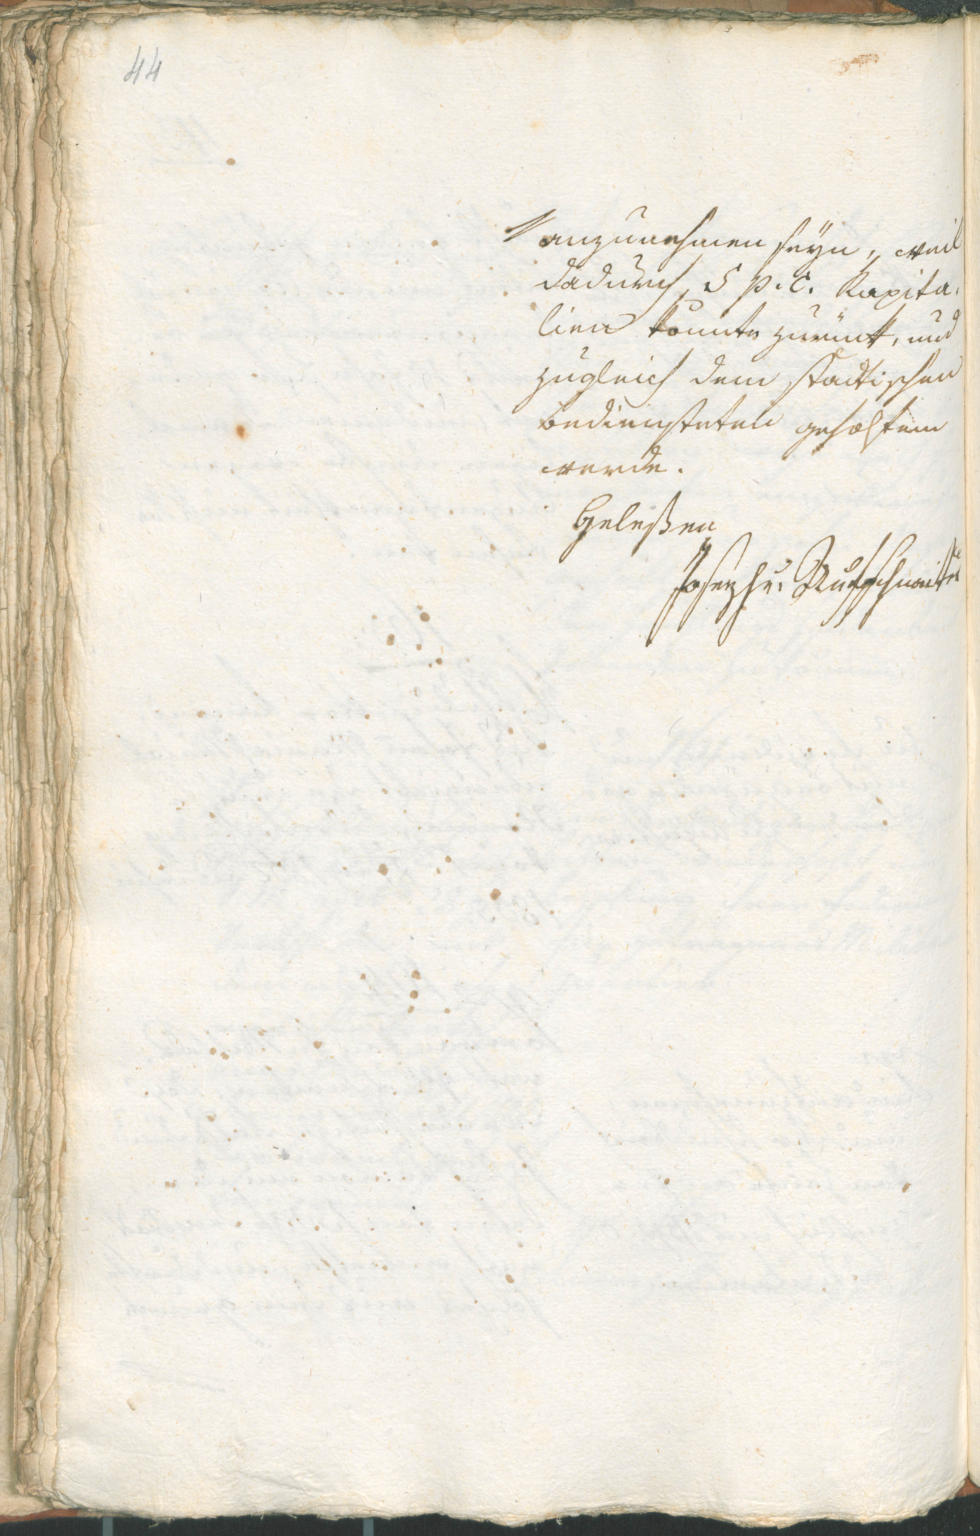 44
anzunehmen seyn, weil
dadurch 5 p. C. Kapita-
lien konnte zurück, und
zugleich dem stadtischen
Bediensteten geholfen
werde.
Gelesßen
Joseph v.